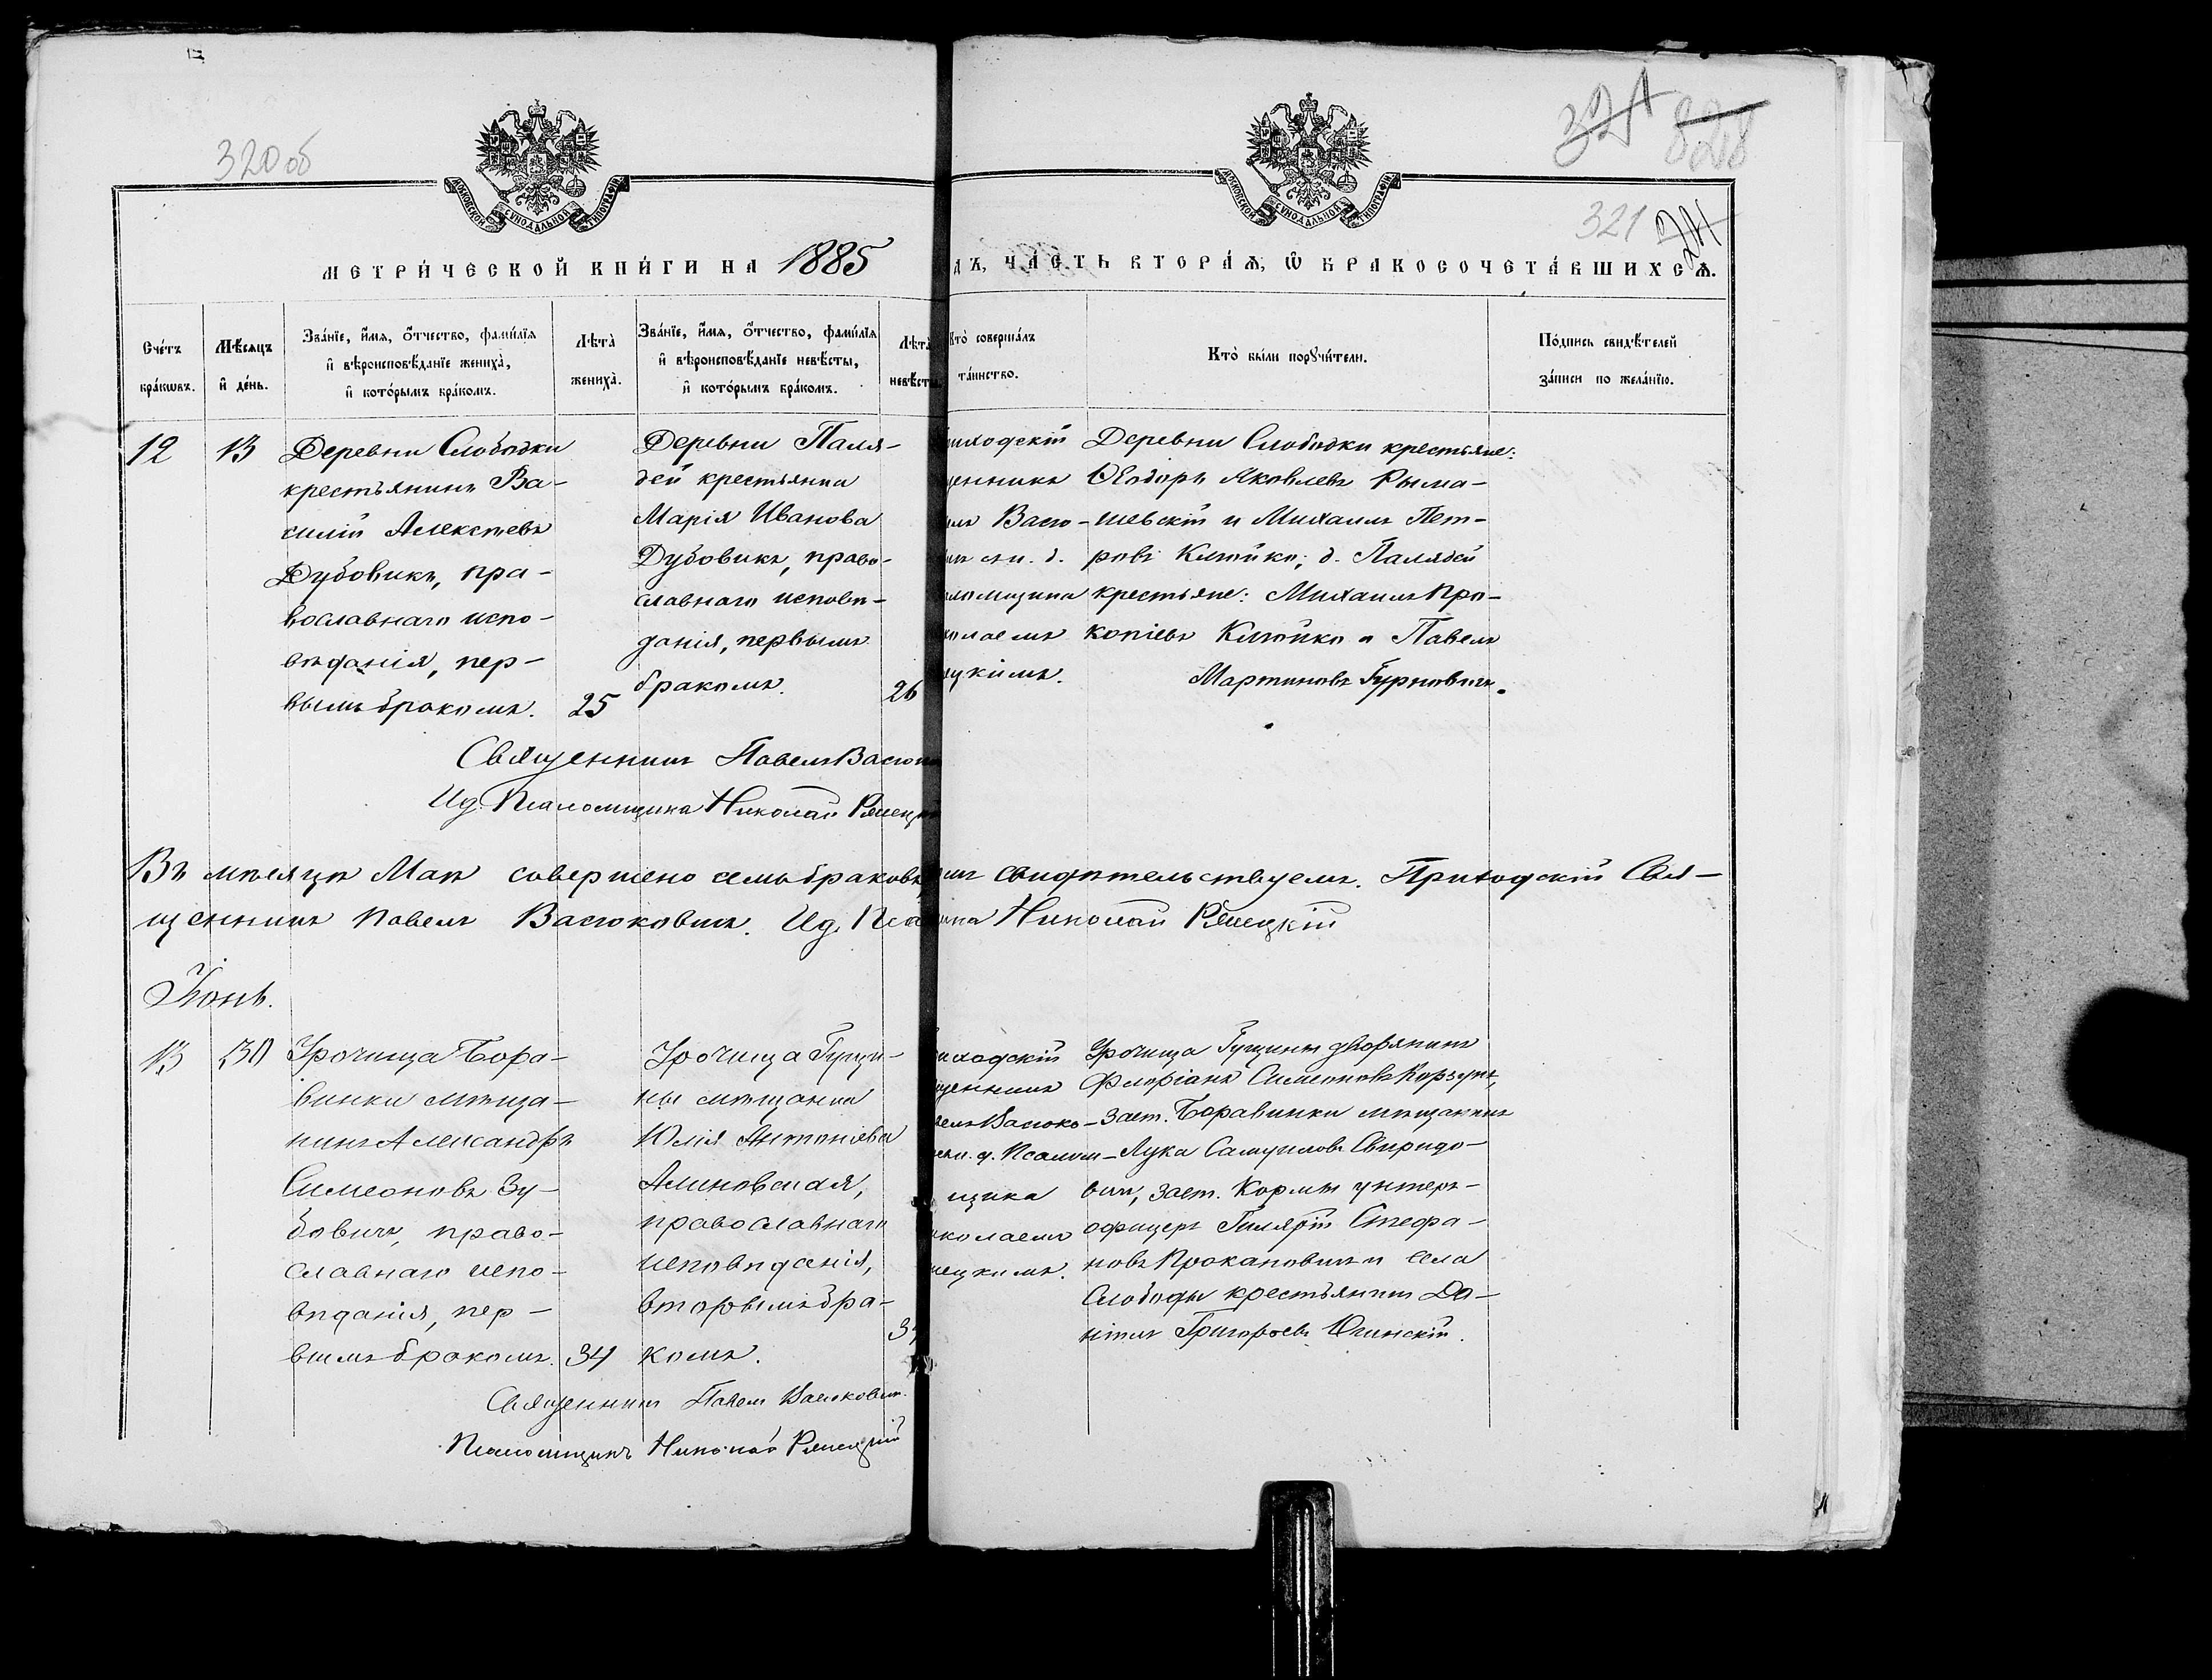 320 об
321
МОСКОВСКОЙ СУНОДАЛЬНОЙ ТИПОГРАФІИ
МОСКОВСКОЙ СУНОДАЛЬНОЙ ТИПОГРАФІИ
МЕТРИ́ЧЕСКОЙ КНИ́ГИ НА 1885
ДЪ, ЧА́СТЬ ВТОРА́Ѧ, Ѿ БРАКОСОЧЕТА́ВШИХСѦ.
Сче́тъ бра́кѡвъ.
Мѣ́сяцъ и҆ де́нь.
Зва́нїе, и҆́мя, ѻ҆́тчество, фами́лїя
и҆ вѣроисповѣ́данїе жениха̀,
и҆ кото́рымъ бра́комъ.
Лѣта̀ жениха̀.
Зва́нїе, и҆́мя, ѻ҆́тчество, фами́лїя
и҆ вѣроисповѣ́данїе невѣ́сты,
и҆ кото́рымъ бра́комъ.
Лѣта̀
невѣ́сты
Кто̀ соверша́лъ
та́инство.
Кто̀ бы́ли порꙋчи́тели.
По́дпись свидѣ́телей
за́писи по жела́нїю.
12
13
Деревни Слободки
крестьянинъ Ва-
силій Алексѣевъ
Дубовикъ, пра-
вославнаго испо-
вѣданія, пер-
вымъ бракомъ.
25
Деревни Паля-
дей крестьянка
Марія Иванова
Дубовикъ, право-
славнаго исповѣ-
данія, первымъ
бракомъ.
26
иходскій
щенникъ
лъ Васю-
чъ и. д.
ломщика
колаемъ
цкимъ.
Деревни Слободки крестьяне:
Ѳеодоръ Яковлевъ Рыма-
шевскій и Михаилъ Пет-
ровъ Клюйко; д. Палядей
крестьяне: Михаилъ Про-
копіевъ Клюйко и Павелъ
Мартиновъ Гурновичъ.
Священникъ Павелъ Васюк
Ид. Псаломщика Николай Рѣшец
Въ мѣсяцѣ Маѣ совершено семь браковъ
свидѣтельствуемъ. Приходскій Свя-
щенникъ Павелъ Васюковичъ. Ид. Пса
ика Николай Рѣшецкій
Іюнь.
13
30
Урочища Бора-
винки мѣща-
нинъ Александръ
Симеоновъ Зу-
бовичъ, право-
славнаго испо-
вѣданія, пер-
вымъ бракомъ.
34
Урочища Гущи-
ны мѣщанка
Юлія Антоніева
Алиновская,
православнаго
исповѣданія,
вторымъ бра-
комъ.
иходскій
щенникъ
велъ Васюко-
и. д. Псалом-
щика
иколаемъ
шецкимъ.
Урочища Гущины дворянинъ
Флоріанъ Симеоновъ Корзунъ,
заст. Боравинки мѣщанинъ
Лука Самуиловъ Свиридо-
вичъ, заст. Кормы унтеръ-
офицеръ Гилярій Стефа-
новъ Прокаповичъ и села
Слободы крестьянинъ Да-
ніилъ Григорьевъ Югинскій.
Священникъ Павелъ Васюковичъ.
Псаломщикъ Николай Рѣшецкій